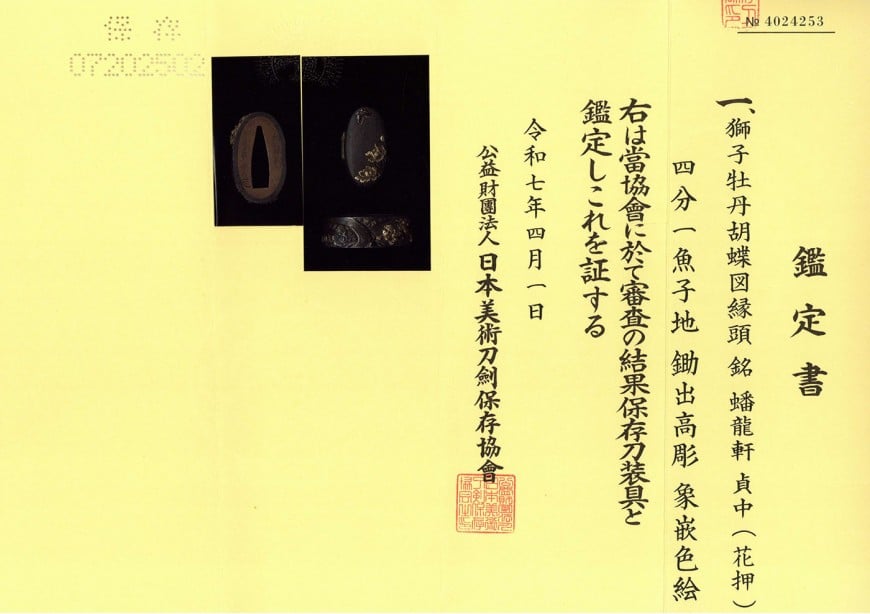 № 4024253
鑑定書
一、獅子牡丹胡蝶図縁頭 銘 蟠龍軒 貞中(花押)
四分一魚子地 鋤出高彫 象嵌色絵
右は當協會に於て審査の結果保存刀装具と
鑑定しこれを証する
令和七年四月一日
公益財團法人 日本美術刀劍保存協會
保存
07202502